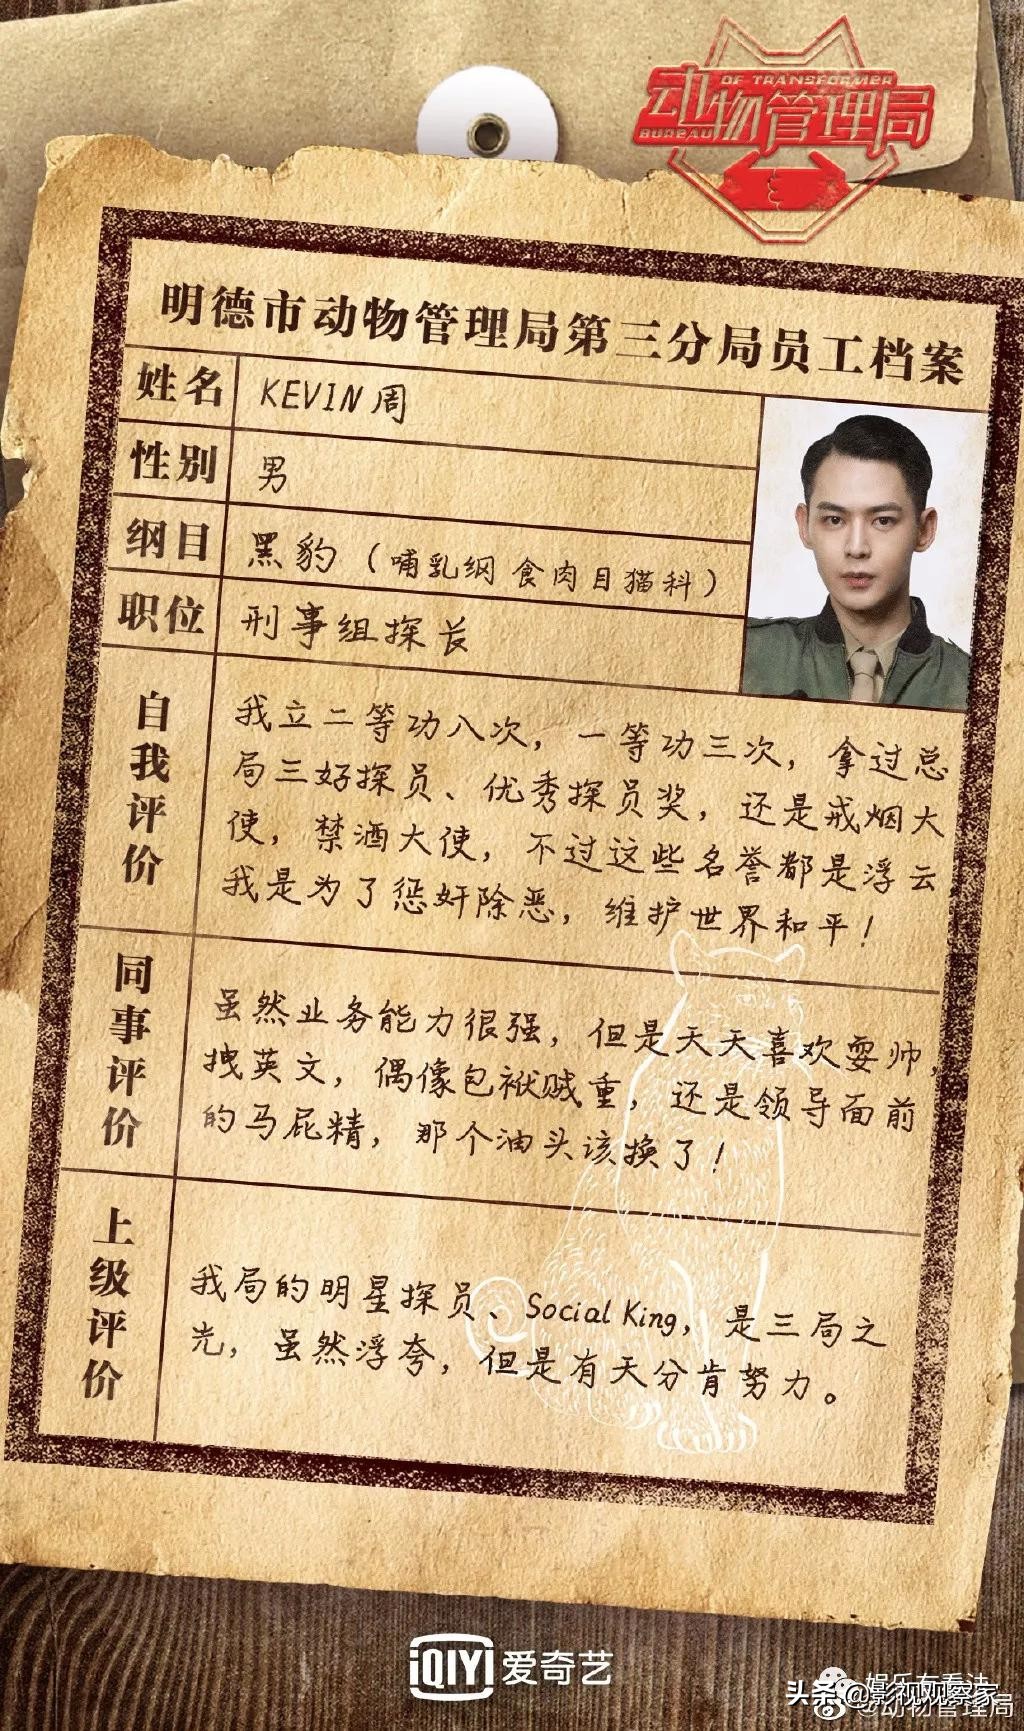 OF TRANSFORMER
动物管理局
BUREAU
明德市动物管理局第三分局员工档案
姓名
KEVIN周
性别
男
纲目
黑豹（哺乳纲 食肉目猫科）
职位
刑事组探长
自我评价
我立二等功八次，一等功三次，拿过总
局三好探员、优秀探员奖，还是戒烟大
使，禁酒大使，不过这些名誉都是浮云
我是为了惩奸除恶，维护世界和平！
同事评价
虽然业务能力很强，但是天天喜欢耍帅，
拽英文，偶像包袱贼重，还是领导面前
的马屁精，那个油头该换了！
上级评价
我局的明星探员、Social King，是三局之
光，虽然浮夸，但是有天分肯努力。
iQIYI 爱奇艺
头条@影视观察家
@动物管理局